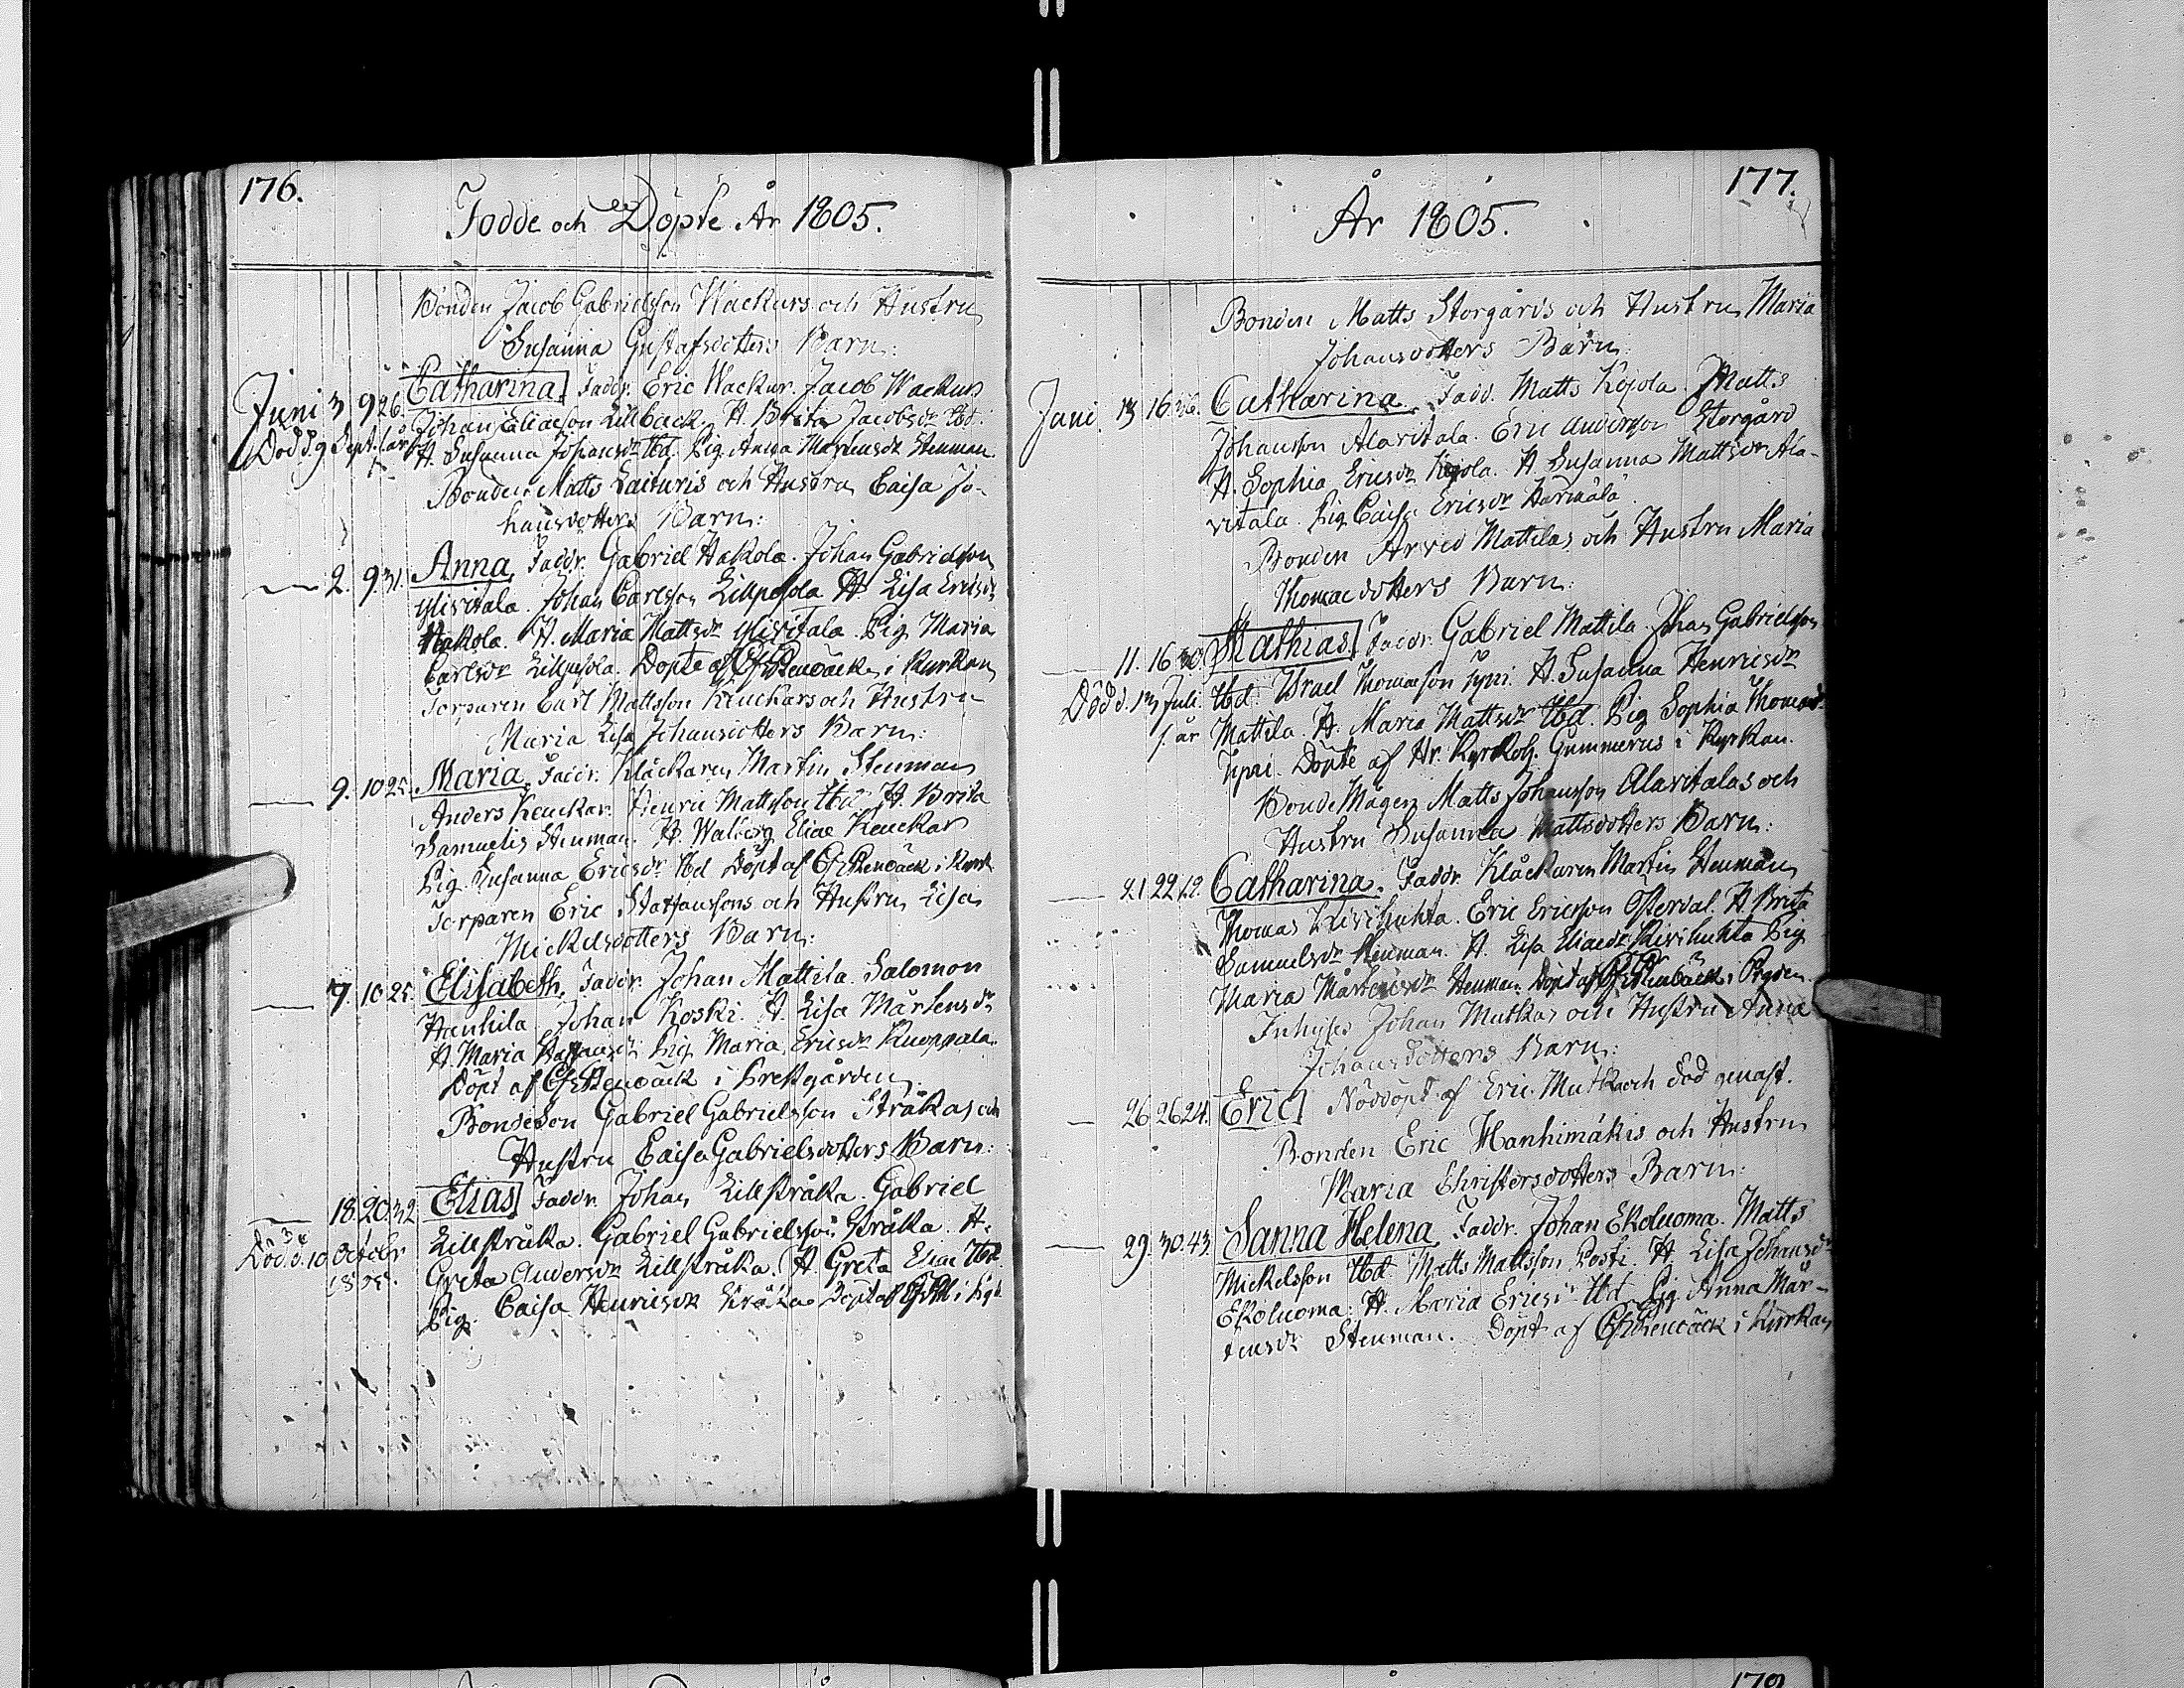 176.
Födde och Döpte År 1805.
Bonden Jacob Gabrielsson Wackurs och Hustru
Susanna Gustafsdotters Barn:
Juni 3 9 26. Catharina. Faddr. Eric Wackur. Jacob Wackur
Johan Eliæson Lillback. H. Brita Jacobsdr ibd.
Död d. 9 Sept. 1 år H. Susanna Johansdr ibd. Pig. Anna Martensdr Stenman.
Bonden Matts Laituris och Hustru Caisa Jo-
hansdotters Barn:
2. 9. 31. Anna, Faddr. Gabriel Hakola. Johan Gabrielsson
Ylivitala. Johan Carlsson Lillpesola H. Lisa Ericsdr
Hakola. H. Maria Mattsdr Yliritala. Pig. Maria
Carlsdr Lillpesola. Döpte af Stenbäck i Kyrkan
Torparen Carl Mattsson Keuckars och Hustru
Maria Lisa Johansdotters Barn:
9. 10 25. Maria, Faddr. Klåckaren Martin Stenman
Anders Keuckar. Henric Mattsson ibd. H. Brita
Samuelis Stenman. H. Walborg Eliæ Keuckar
Pig. Susanna Ericsdr ibd Döpt af Stenbäck i Kyrk
Torparen Eric Staffanssons och Hustru Lisa
Mickelsdotters Barn:
7. 10 25. Elisabeth. Faddr. Johan Mattila. Salomon
Hanhila. Johan Koski. H. Lisa Mårtensdr
H. Maria Pig. Maria Ericsdr Kuoppala.
Döpt af Stenbäck i Prestgården.
BondeSon Gabriel Gabrielsson Stråkas och
Hustru Caisa Gabrielsdotters Barn:
18. 20. 32 Elias Faddr. Johan Lillstråka. Gabriel
Lillstråka. Gabriel Gabrielsson Stråka. H.
Död d. 10 Octobr Greta Andersdr Lillstråka. H. Greta Eliae ibd.
Pig. Caisa Henricsdr Stråka Döpt af
177.
År 1805.
Bonden Matts Storgårds och Hustru Maria
Johansdotters Barn:
Juni 13 16 36. Catharina. Fadd. Matts Kojola. Matts
Johansson Alaritala. Eric Andersson Storgård
H. Sophia Ericsdr Kojola. H. Susanna Mattsdr Ala-
ritala. Pig. Caisa Ericsdr Harmälä.
Bonden Arved Mattilas och Hustru Maria
Thomæ dotters Barn:
11. 16 30. Mathias Faddr. Gabriel Mattila. Johan Gabrielsson
Död d. 13 Juli. ibd. Israel Thomæson Hypri. H. Susanna Henricsdr
1. år Mattila. H. Maria Mattsdr ibd. Pig. Sophia Thomæd
Döpte af Hr. Kyrkoh. Gummerus i Kyrkan.
BondeMågen Matts Johansson Alaritalas och
Hustru Susanna Mattsdotters Barn:
21. 22 19. Catharina. Faddr. Klåckaren Martin Stenman
Thomas Kivihuhta. Eric Ericsson Österval. H. Brita
Samuelsdr Stenman. H. Lisa Eliaedr Kivihuhta Pig
Maria Mårtensdr Stenman Döpt af Stenbäck i Prgden.
Inhyses Johan Mutkas och Hustru Anna
Johansdotters Barn:
26 26 24. Eric Nöddöpt af Eric Mutka och död genast.
Bonden Eric Hanhimäkis och Hustru
Maria Christersdotters Barn:
29. 30. 43. Sanna Helena, Faddr. Johan Ekoluoma. Matts
Mickelsson ibd. Matts Mattsson Posti. H. Lisa Johansdr
Ekoluoma. H. Maria Ericsd. ibd. Pig. Anna Mår-
tensdr Stenman. Döpt af Stenbäck i Kyrkan